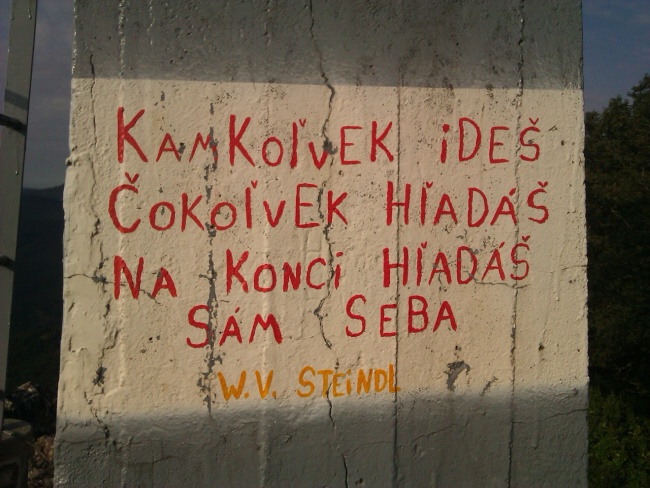 KAMKOĽVEK iDEŠ
ČOKOĽVEK HĽADÁŠ
NA KONCi HĽADÁŠ
SÁM SEBA
W.V. STEiNDL